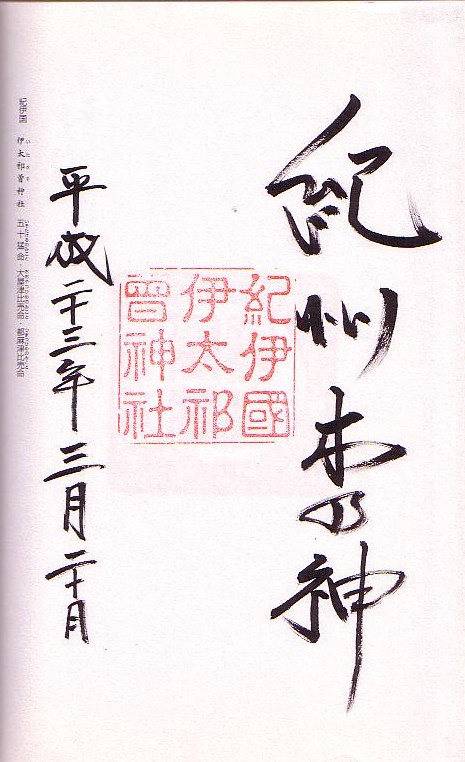 紀州木乃神
紀伊國
伊太祁
曾神社
平成二十三年三月二十日
紀伊国 伊太祁曽神社 五十猛命・大屋津比売命・都麻津比売命